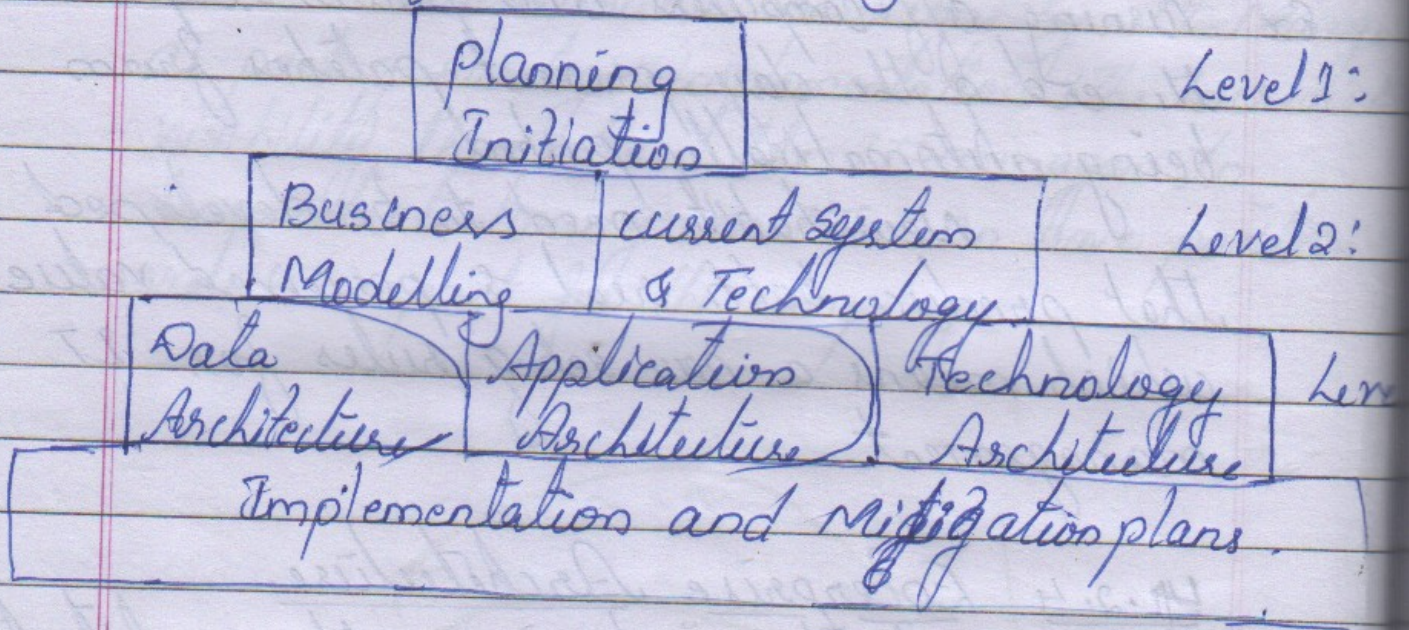 Planning
Initiation
Level 1:
Business
Modelling
current System
& Technology
Level 2:
Data
Architecture
Application
Architecture
Technology
Architecture
Implementation and Mitigation plans.